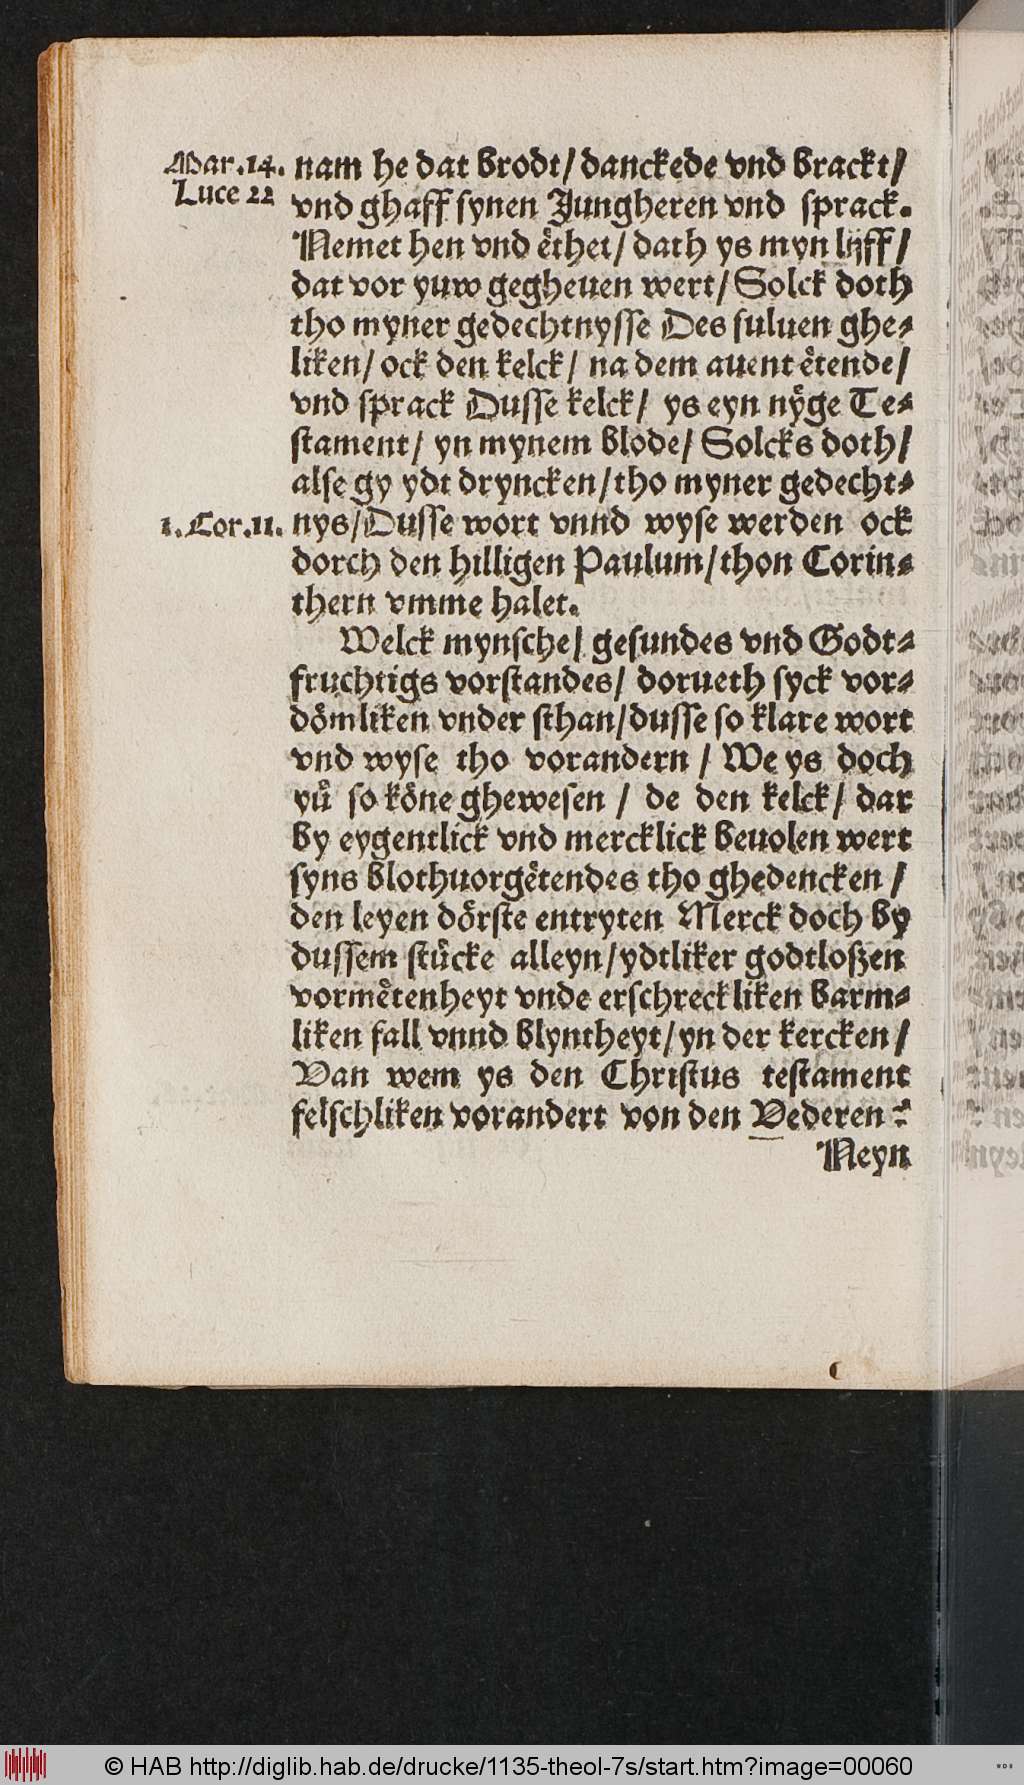 Mar.14.
Luce 22
nam he dat brodt/ danckede vnd brackt/
vnd ghaff synen Jungheren vnd sprack.
Nemet hen vnd ethet/ dath ys myn lyff/
dat vor yuw gegheuen wert/ Solck doth
tho myner gedechtnysse Des suluen ghe-
liken/ ock den kelck/ na dem auent etende/
vnd sprack Dusse kelck/ ys eyn nyge Te-
stament/ yn mynem blode/ Solcks doth/
alse gy ydt dryncken/ tho myner gedecht-
1.Cor.11.
nys/ Dusse wort vnnd wyse werden ock
dorch den hilligen Paulum/ thon Corin-
thern vmme halet.
Welck mynsche/ gesundes vnd Godt-
fruchtigs vorstandes/ dorueth syck vor-
dömliken vnder sthan/ dusse so klare wort
vnd wyse tho vorandern/ We ys doch
yü so köne ghewesen/ de den kelck/ dar
by eygentlick vnd mercklick beuolen wert
syns blothuorgetendes tho ghedencken/
den leyen dörste entryten Merck doch by
dussem stücke alleyn/ ydtliker godtloszen
vormetenheyt vnde erschreckliken barm-
liken fall vnnd blyntheyt/ yn der kercken/
Van wem ys den Christus testament
felschliken vorandert von den Vederen?
Neyn
© HAB http://diglib.hab.de/drucke/1135-theol-7s/start.htm?image=00060